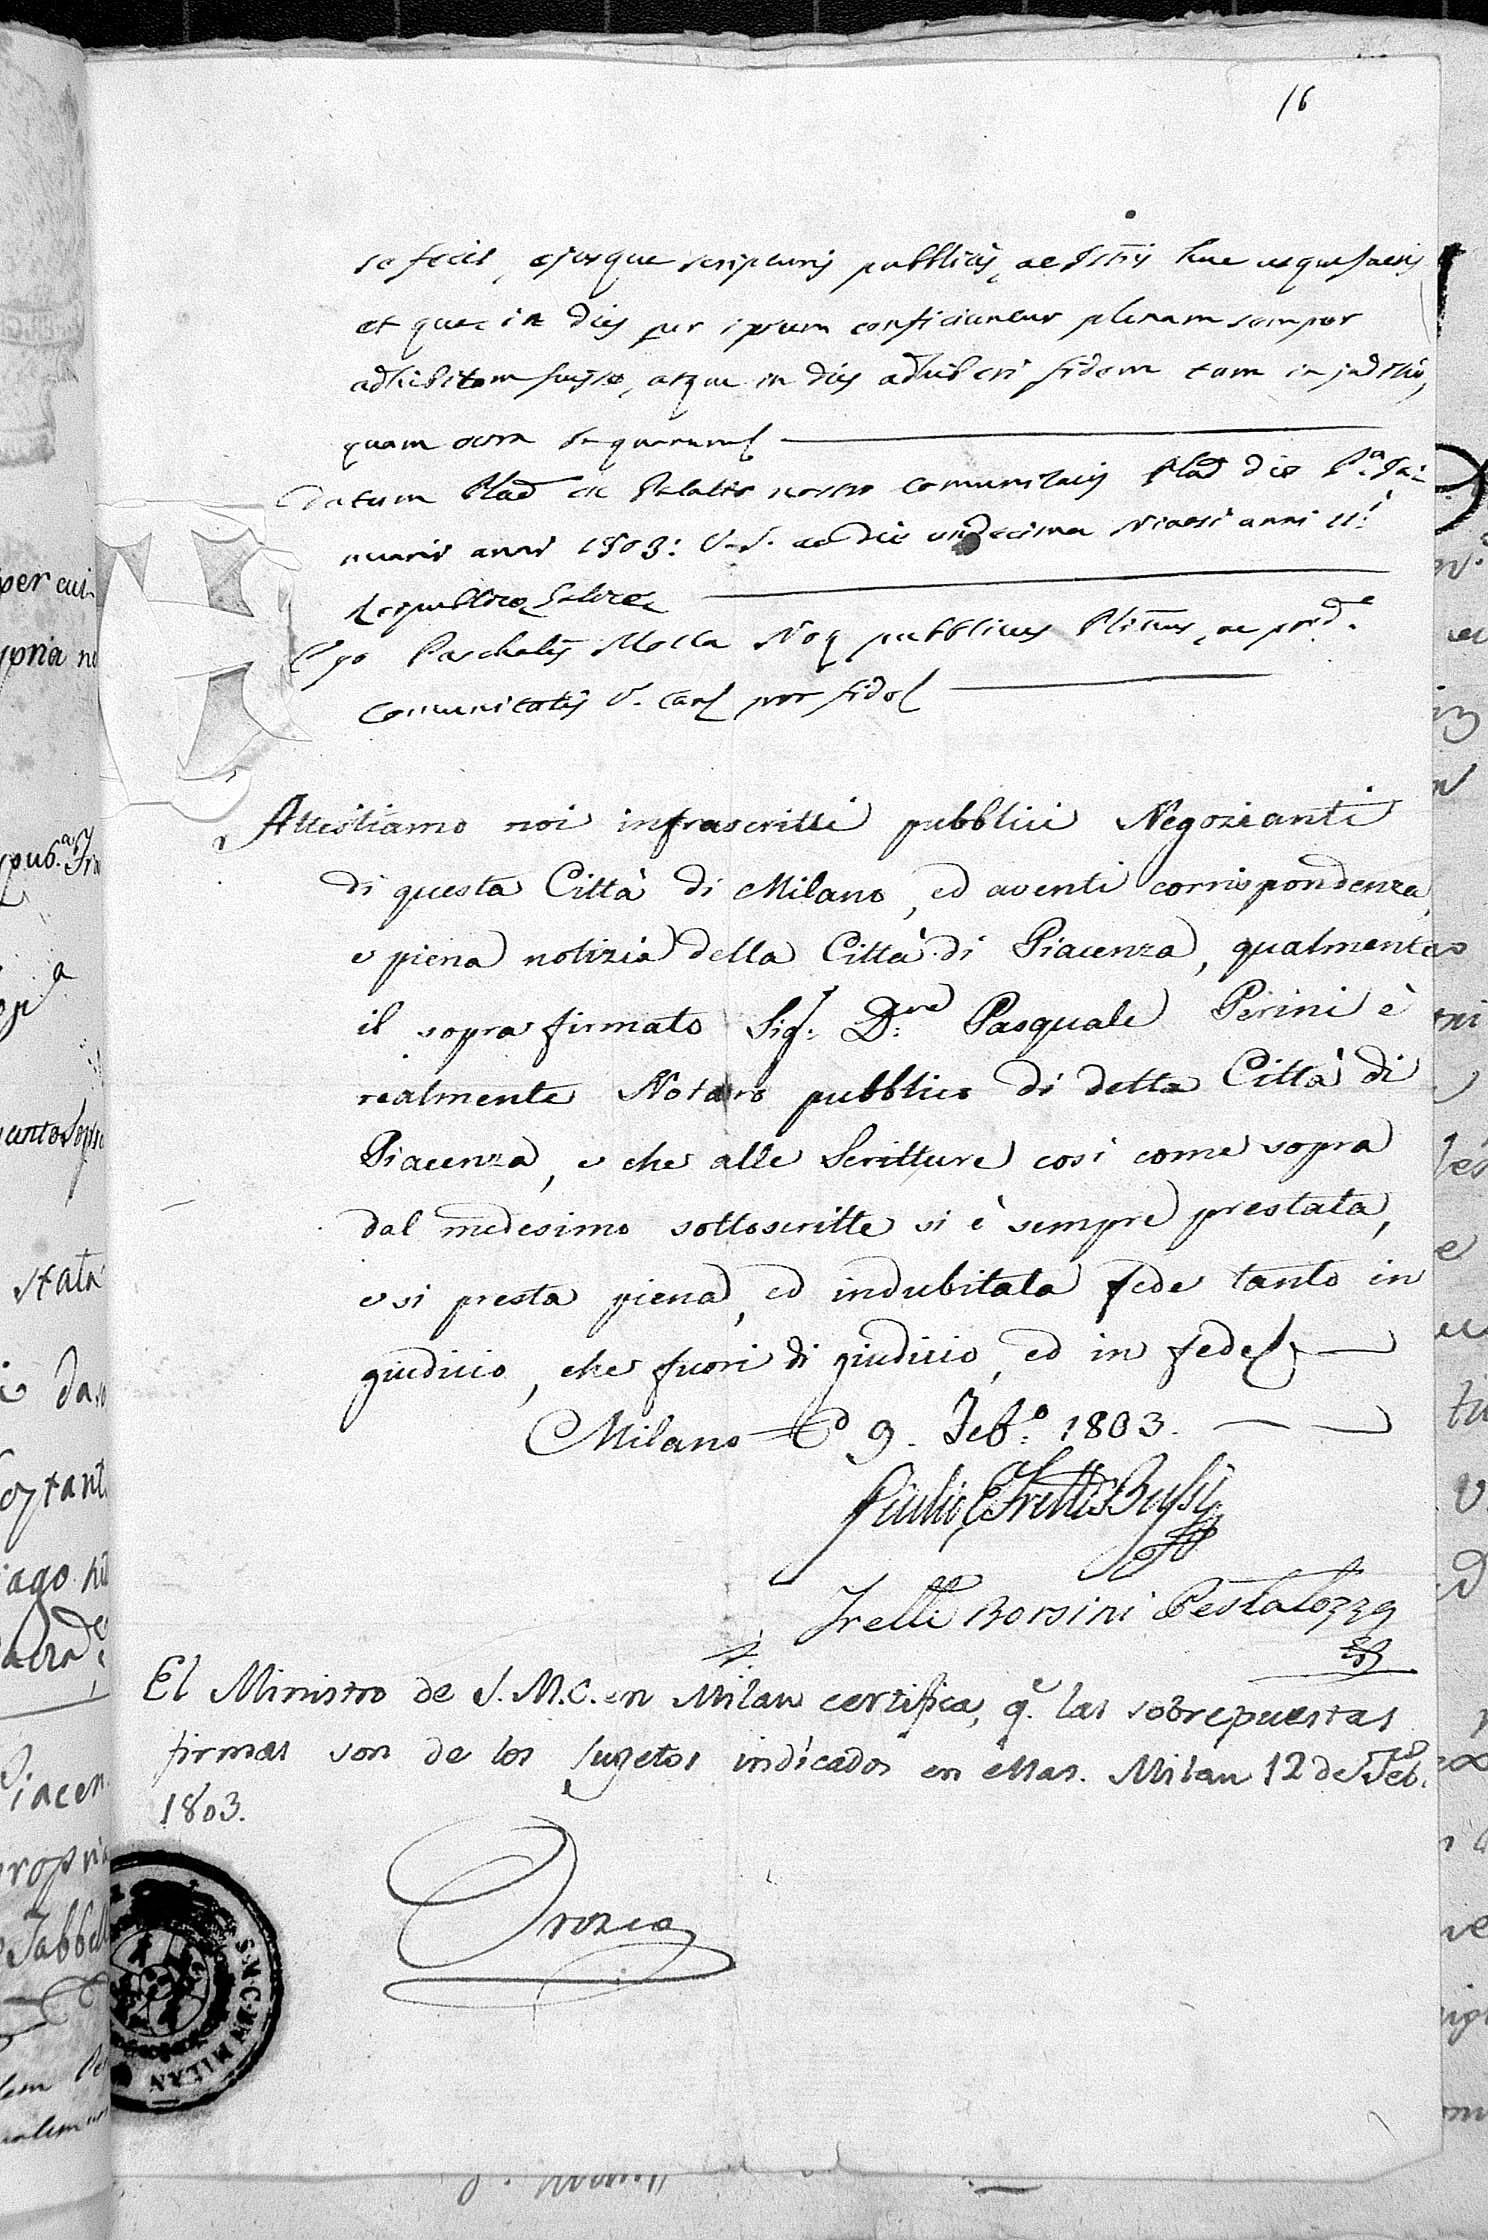 16
se fecit, ejusque scripturis pubblicis, ac Istis huc usque factis
et quæ in dies per ipsum conficiuntur plenam semper
adhibitam fuisse, atque in dies adhiberi fidem tam in judicio,
quam extra In quorum
Datum Plac. ex Palatio nostro Comunitatis Plac. die P.a Ja=
nuarii anni 1803: V. S. ac die undecima Nivosi anni 11.i
Reipublicæ Gallicæ
Ego Paschalis Molla Not. pubblicus Plinus, ac præd.e
Comunitatis V. Canc. pro fide
Attestiamo noi infrascritti pubblici Negozianti
di questa Città di Milano, ed aventi corrispondenza,
e piena notizia della Città di Piacenza, qualmente
il sopra firmato Sig.r D.re Pasquale Perini è
realmente Notaro pubblico di detta Città di
Piacenza, e che alle Scritture così come sopra
dal medesimo sottoscritte si è sempre prestata,
e si presta piena, ed indubitata fede tanto in
giudicio, che fuori di giudicio, ed in fede
Milano 9. Feb.o 1803.
Giulio Fratelli Bussi
Frelli Borsini Pestalozza
El Ministro de S. M. C. en Milan certifica, q.e las sobrepuestas
firmas son de los sugetos indicados en ellas. Milan 12 de Feb.o
1803.
Orozco
S. M. C. EN MILAN